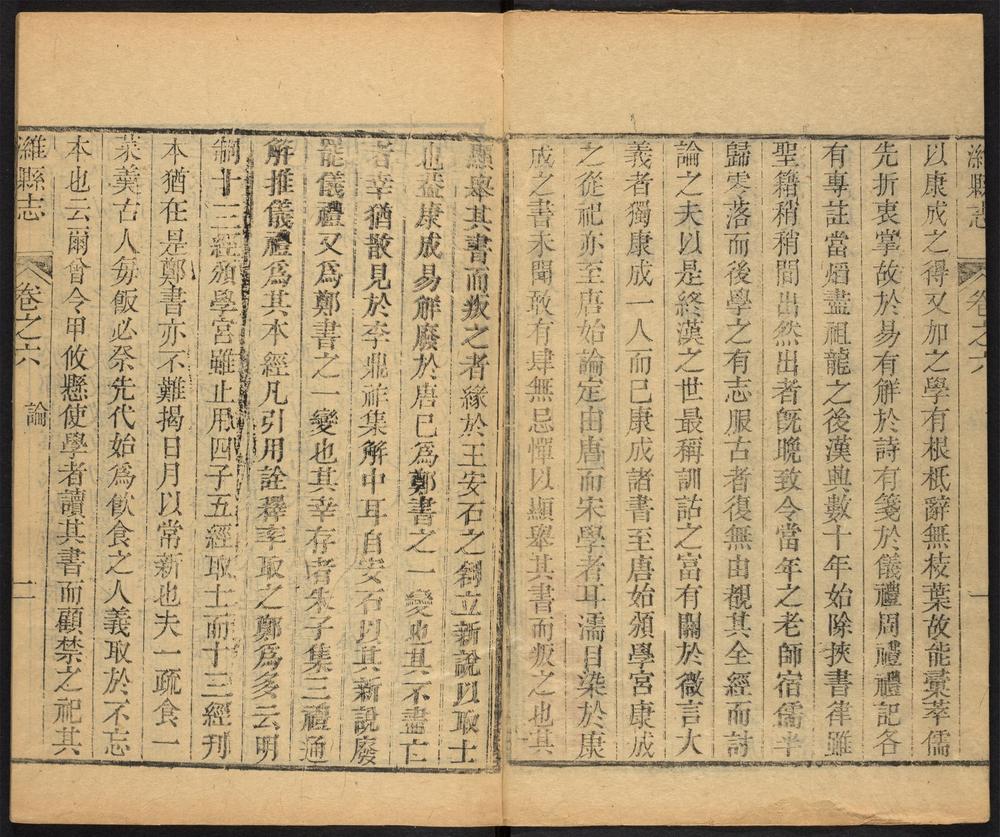 濰縣志 卷之六 一
以康成之得又加之學有根柢辭無枝葉故能囊萃儒
先折衷掌故於易有解於詩有箋於儀禮周禮禮記各
有專註當熖盡祖龍之後漢興數十年始除挾書律雖
聖籍稍稍間出然出者旣晚致令當年之老師宿儒半
歸零落而後學之有志服古者復無由覩其全經而討
論之夫以是終漢之世最稱訓詁之富有關於微言大
義者獨康成一人而已康成諸書至唐始頒學宮康成
之從祀亦至唐始論定由唐而宋學者耳濡目染於康
成之書未聞敢有肆無忌憚以顯舉其書而叛之也其
顯舉其書而叛之者緣於王安石之創立新說以取士
也蓋康成易解廢於唐已爲鄭書之一變也其不盡亡
者幸猶散見於李鼎祚集解中耳自安石以其新說廢
罷儀禮又爲鄭書之一變也其幸存者朱子集三禮通
解推儀禮爲其本經凡引用詮釋率取之鄭爲多云明
制十三經頒學宮雖止用四子五經取士而十三經刊
本猶在是鄭書亦不難揭日月以常新也夫一疏食一
菜羹古人每飯必祭先代始爲飲食之人義取於不忘
本也云爾曾令甲攸懸使學者讀其書而顧禁之祀其
濰縣志 卷之六 論 二